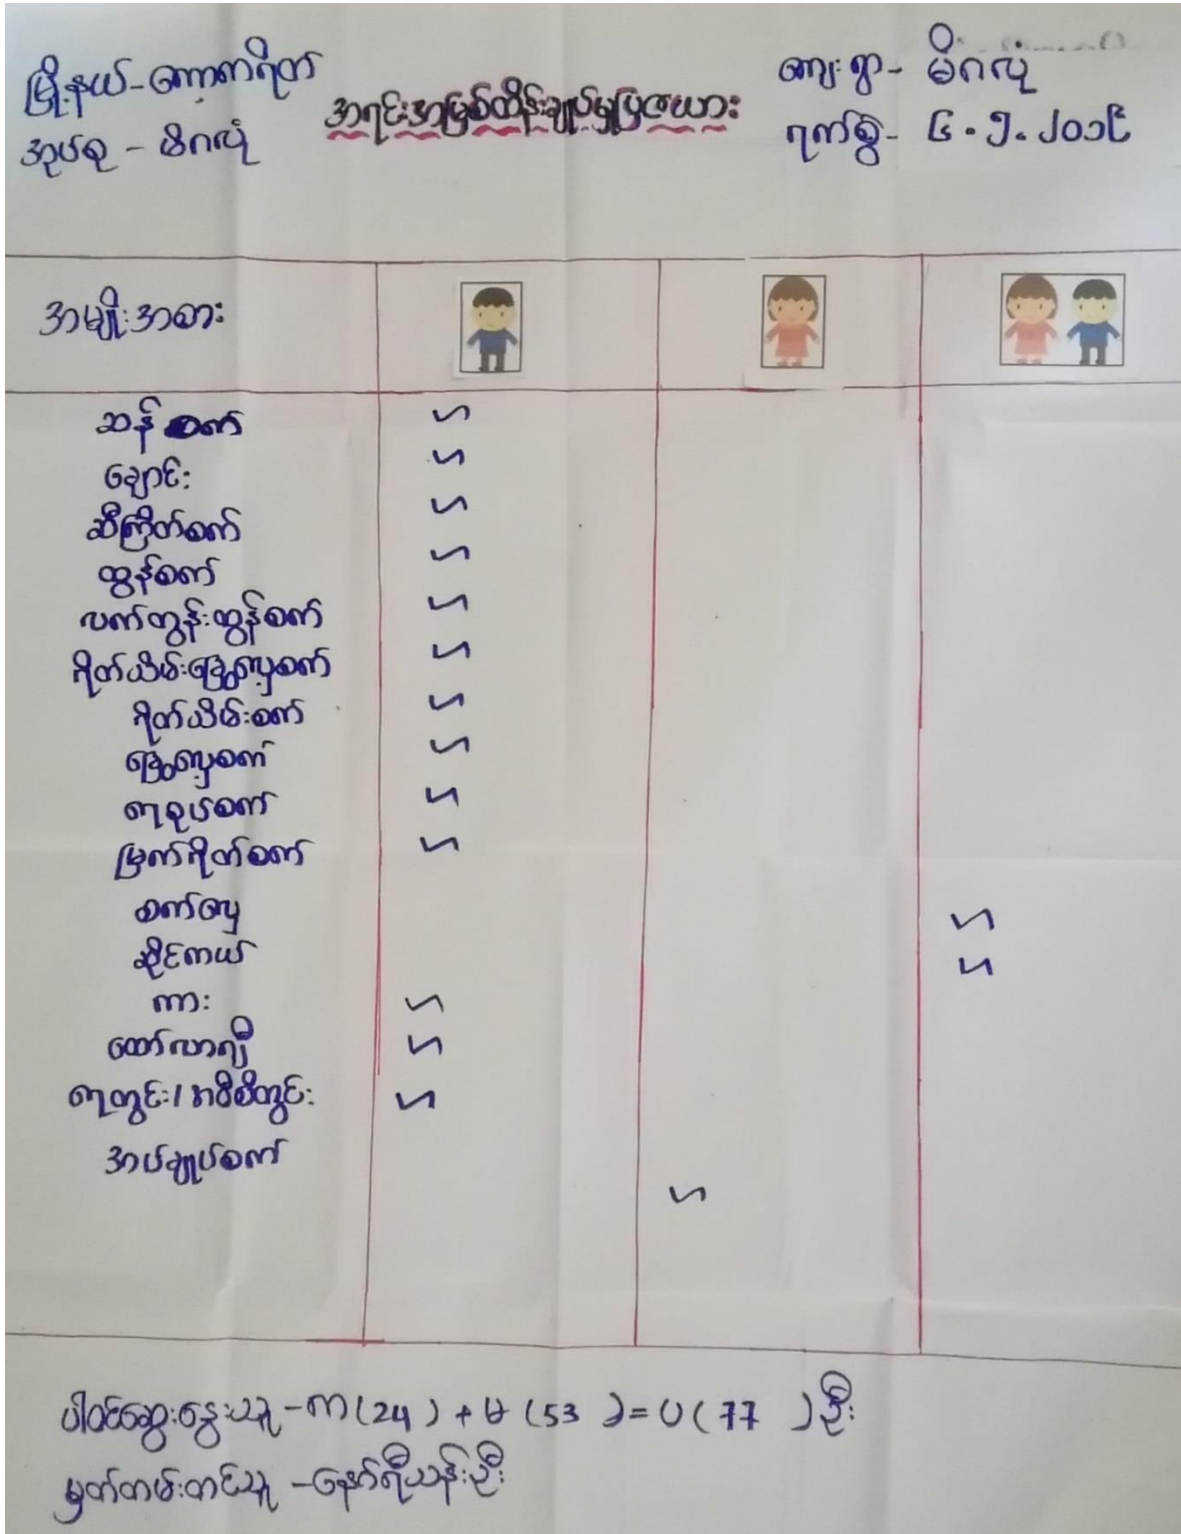 မြို့နယ်-ကော့ကရိတ်
အုပ်စု - မိဂလုံ
အရင်းအမြစ်ထိန်းချုပ်မှုပြဇယား
ကျေးရွာ- မိဂလုံ
ရက်စွဲ- ၆.၅.၂၀၁၉
အမျိုးအစား
ဆန်စက် ၊
ချောင်း
ဆီကြိတ်စက်
ထွန်စက်
လက်တွန်းထွန်စက်
ရိတ်သိမ်းခြွေလှေ့စက်
ရိတ်သိမ်းစက်
ခြွေလှေ့စက်
ရေစုပ်စက်
မြက်ရိတ်စက်
စက်လှေ
ဆိုင်ကယ်
ကား
ထော်လာဂျီ
ရေတွင်း/အဝီစိတွင်း
အပ်ချုပ်စက်
ပါဝင်ဆွေးနွေးသူ-ကျ(24) + မ (53) = ပ(77) ဦး
မှတ်တမ်းတင်သူ -နော်ရီသန်းဦး